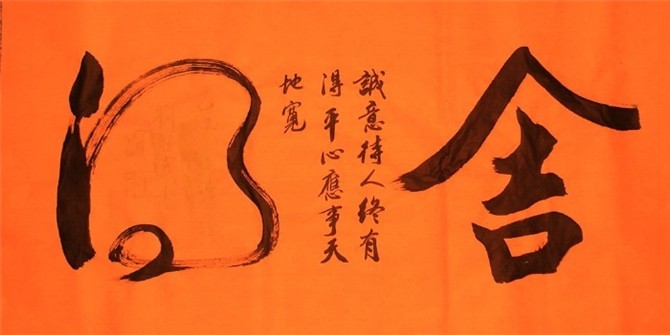 舍得
誠意待人终有
得平心應事天
地寬